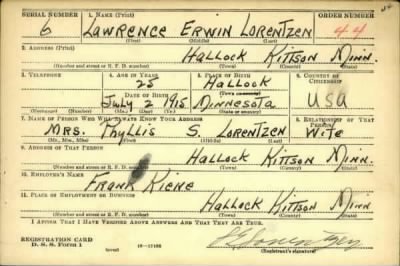 SERIAL NUMBER 1. NAME (Print) ORDER NUMBER
6 LAWRENCE ERWIN LORENTZEN 44
(First) (Middle) (Last)
2. ADDRESS (Print)
HALLOCK KITTSON MINN.
(Number and street or R. F. D. number) (Town) (County) (State)
3. TELEPHONE 4. AGE IN YEARS 5. PLACE OF BIRTH 6. COUNTRY OF CITIZENSHIP
25 HALLOCK
DATE OF BIRTH (Town or county)
July 2 1915 MINNESOTA USA
(Exchange) (Number) (Mo.) (Day) (Yr.) (State or country)
7. NAME OF PERSON WHO WILL ALWAYS KNOW YOUR ADDRESS 8. RELATIONSHIP OF THAT PERSON
MRS. Phyllis S. LORENTZEN Wife
(Mr., Mrs., Miss) (First) (Middle) (Last)
9. ADDRESS OF THAT PERSON
HALLOCK KITTSON MINN.
(Number and street or R. F. D. number) (Town) (County) (State)
10. EMPLOYER'S NAME
FRANK KIENE
11. PLACE OF EMPLOYMENT OR BUSINESS
HALLOCK KITTSON MINN
(Number and street or R. F. D. number) (Town) (County) (State)
I AFFIRM THAT I HAVE VERIFIED ABOVE ANSWERS AND THAT THEY ARE TRUE.
REGISTRATION CARD
D. S. S. FORM 1 (over) 16-17105
(Registrant's signature)